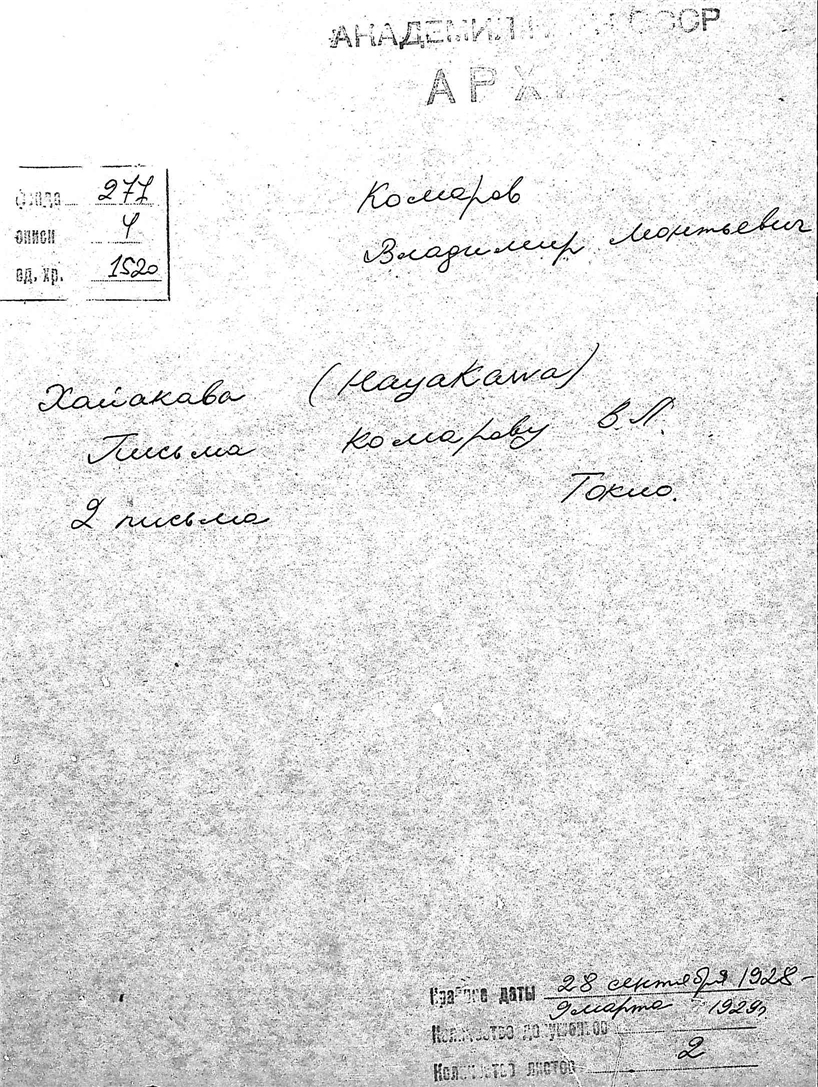 АКАДЕМИЯ НАУК СССР
АРХИВ
фонда 277
описи 4
ед. хр. 1520
Комаров
Владимир Леонтьевич
Хайакава (Hayakawa)
Письма Комарову В.Л.
Токио.
2 письма
Крайние даты 28 сентября 1928 -
9 марта 1929г
Количество документов
Количество листов 2